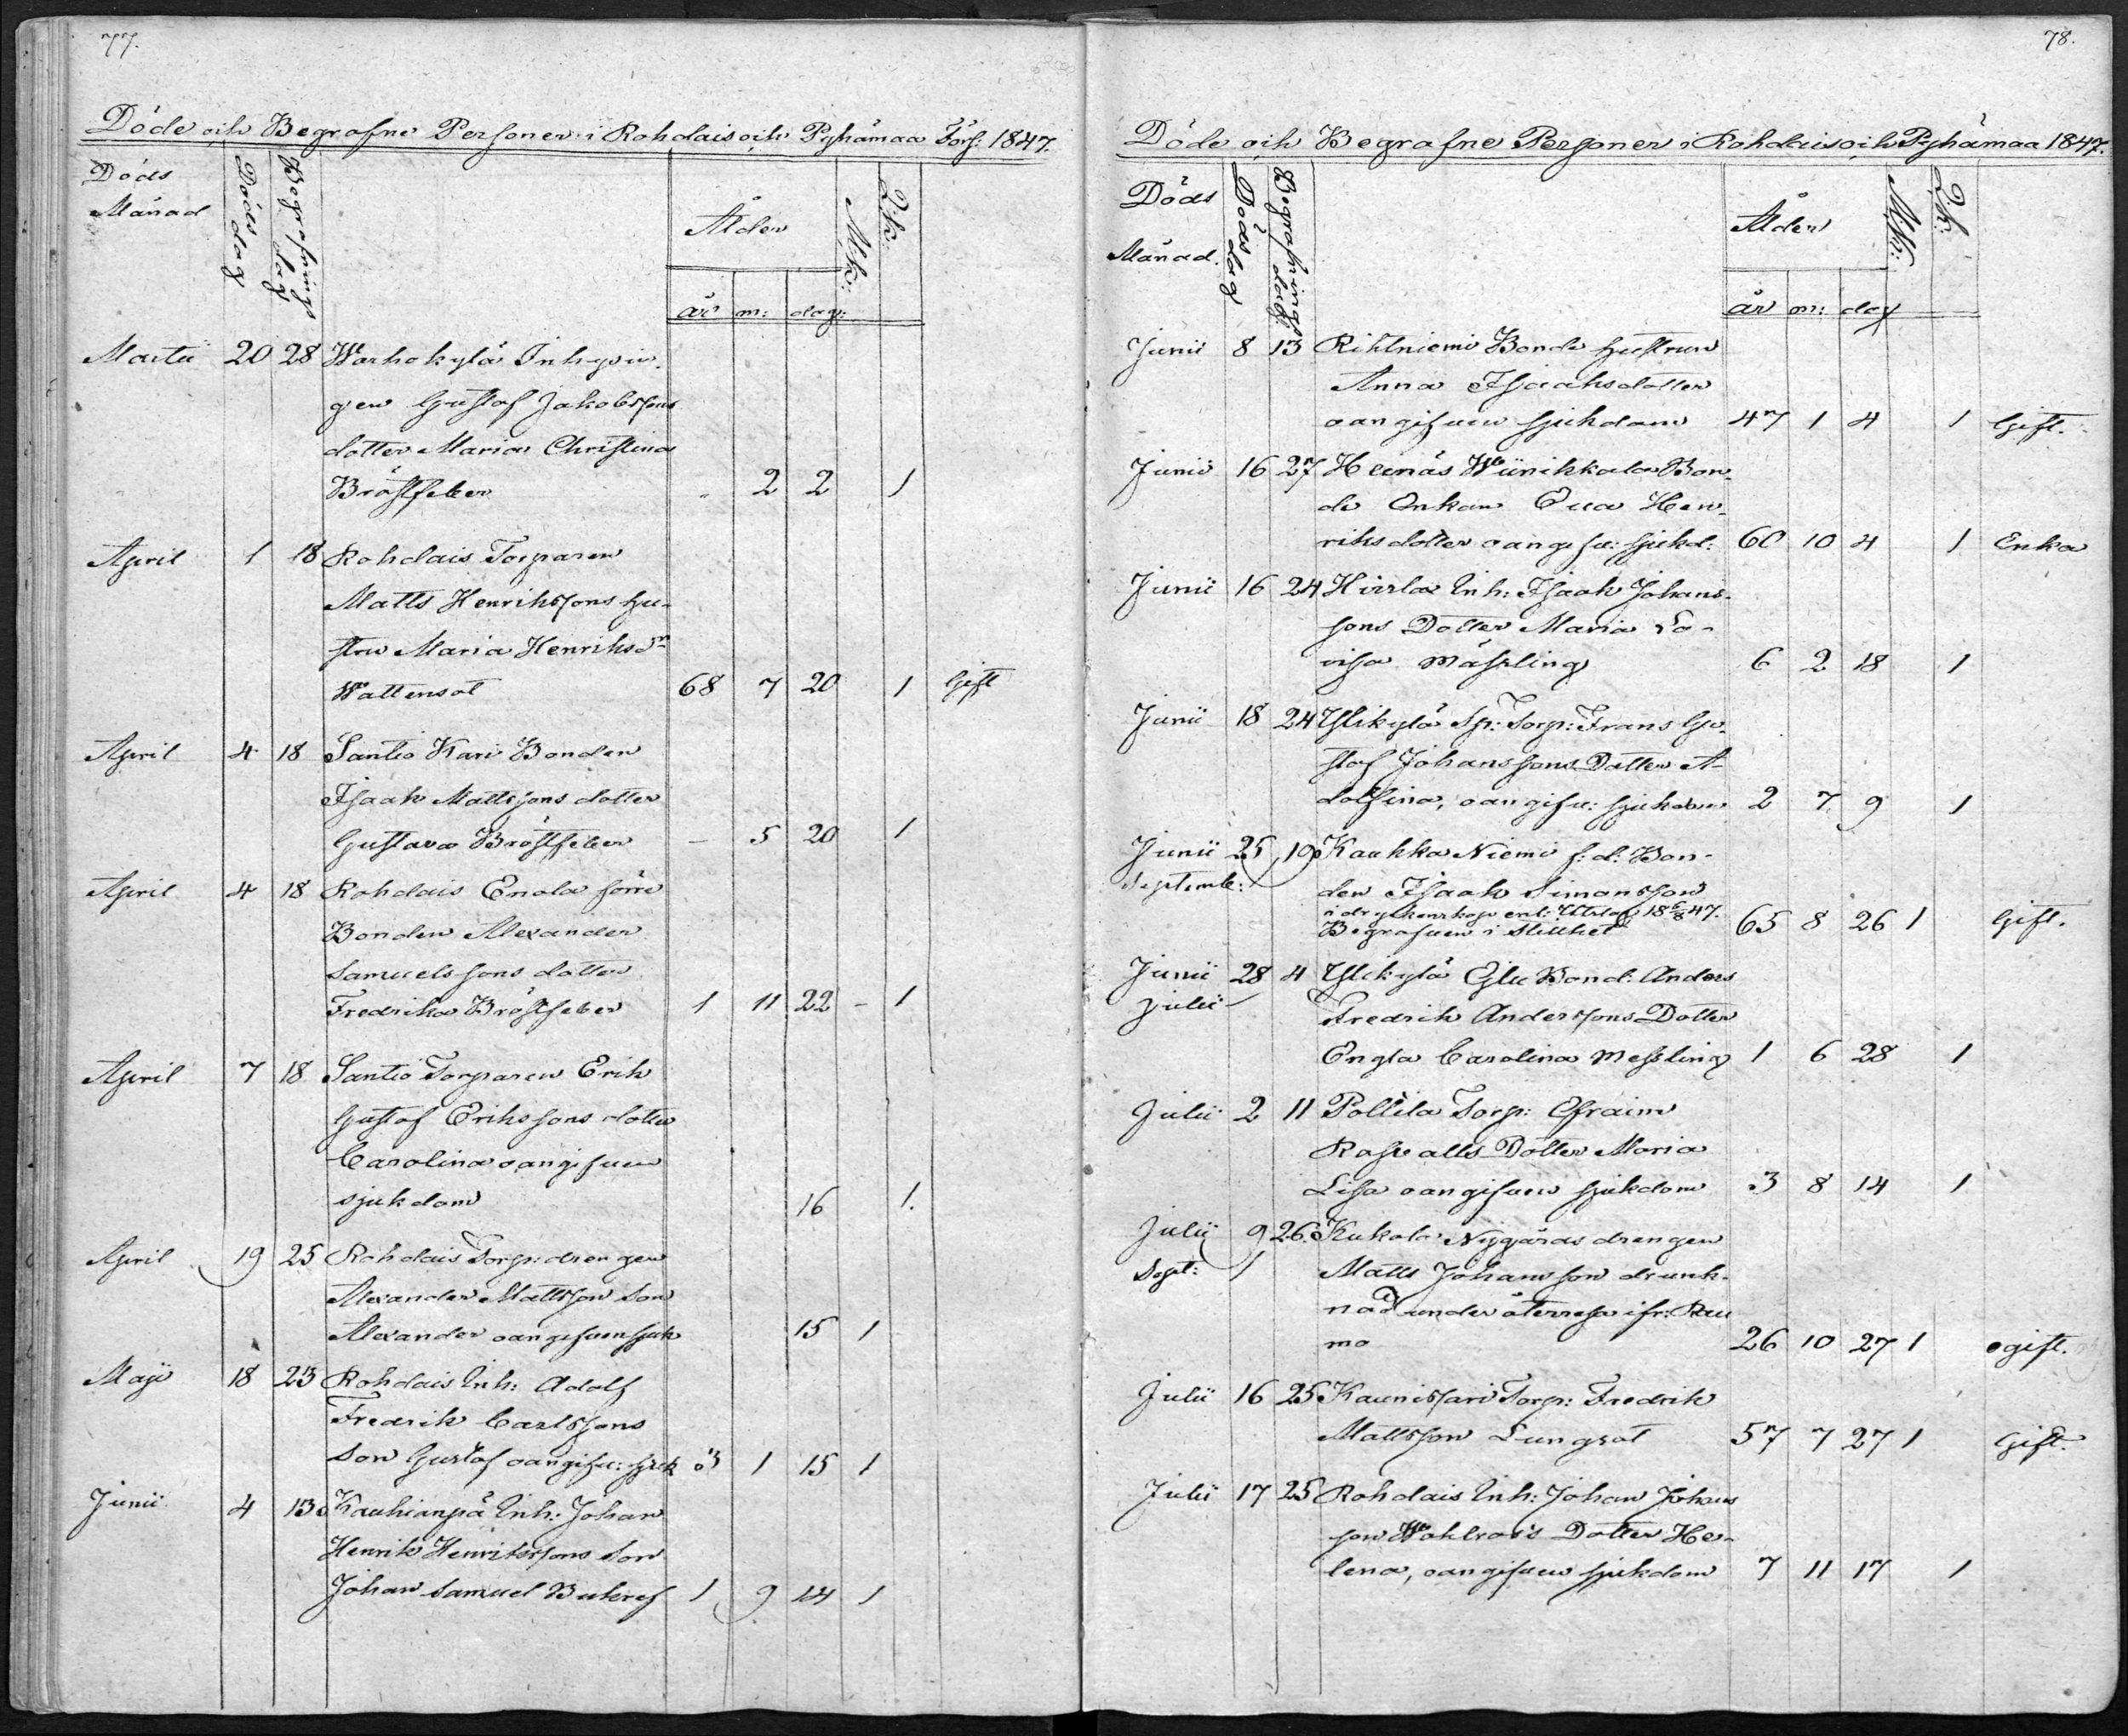 77.
Döde och Begrafne Personer i Rohdais och Pyhämaa Förs: 1847.
Döds Månad
Döds dag
Begrafnings dag
Ålder
M.k:
Q.k:
år m: dag:
Martii 20 28 Warhokylä Inhysin-
gen Gustaf Jakobssons
dotter Maria Christina
Bröstfeber " 2 2 1
April 1 18 Rohdais Torparen
Matts Henrikssons hu-
stru Maria Henriksdr
Wattensot 68 7 20 1 Gift
April 4 18 Santio Kari Bonden
Isaak Mattssons dotter
Gustava Bröstfeber - 5 20 1
April 4 18 Rohdais Enola förre
Bonden Alexander
Samuelssons dotter
Fredrika Bröstfeber 1 11 22 - 1
April 7 18 Santio Torparen Erik
Gustaf Erikssons dotter
Carolina oangifven
sjukdom 16 1.
April 19 25 Rohdais Torp: drengen
Alexander Mattsson son
Alexander oangifven sjuk 15 1
Maji 18 23 Rohdais Inh: Adolf
Fredrik Carlssons
son Gustaf oangifv: sjuk 3 1 15 1
Junii 4 13 Kauhianpä Inh: Johan
Henrik Henrikssons son
Johan Samuel Bukref 1 9 14 1
78.
Döde och Begrafne Personer i Rohdais och Pyhämaa 1847.
Döds Månad.
Dödsdag
Begrafnings dag:
Ålder
M.k:
Q.k:
år m: dag
Junii 8 13 Rihtniemi Bonde hustrun
Anna Isaaksdotter
oangifven sjukdom 47 1 4 1 Gift.
Junii 16 27 Heinäs Wiinikkala Bon-
de Enkan Eva Hen-
riksdotter oangifv: sjukd: 60 10 4 1 Enka
Junii 16 24 Hirsla Inh: Isaak Johans-
sons Dotter Maria Lo-
visa mässling 6 2 18 1
Junii 18 24 Ylikylä Sp: Torp: Frans Gu-
staf Johanssons Dotter A-
dolfina, oangifv: sjukdom 2 7 9 1
Junii 25 19 Kaukka Niemi f: d: Bon-
Septemb: den Isaak Simonsson
i dryckenskap enl: Utslag 18 6/8 47.
Begrafven i stillhet 65 8 26 1 Gift.
Junii 28 4 Ylikylä Eslu Bond: Anders
Julii Fredrik Anderssons Dotter
Engla Carolina Messling 1 6 28 1
Julii 2 11 Pollila Torp: Efraim
Rosvalls Dotter Maria
Lisa oangifven sjukdom 3 8 14 1
Julii 9 26. Kukola Nygårds drengen
Sept: Matts Johansson drunk-
nad under återresa ifr: Rau
mo 26 10 27 1 ogift.
Julii 16 25 Kaunissari Torp: Fredrik
Mattsson Lungsot 57 7 27 1 Gift.
Julii 17 25 Rohdais Inh: Johan Johans
son Wahlroos Dotter He-
lena, oangifven sjukdom 7 11 17 1